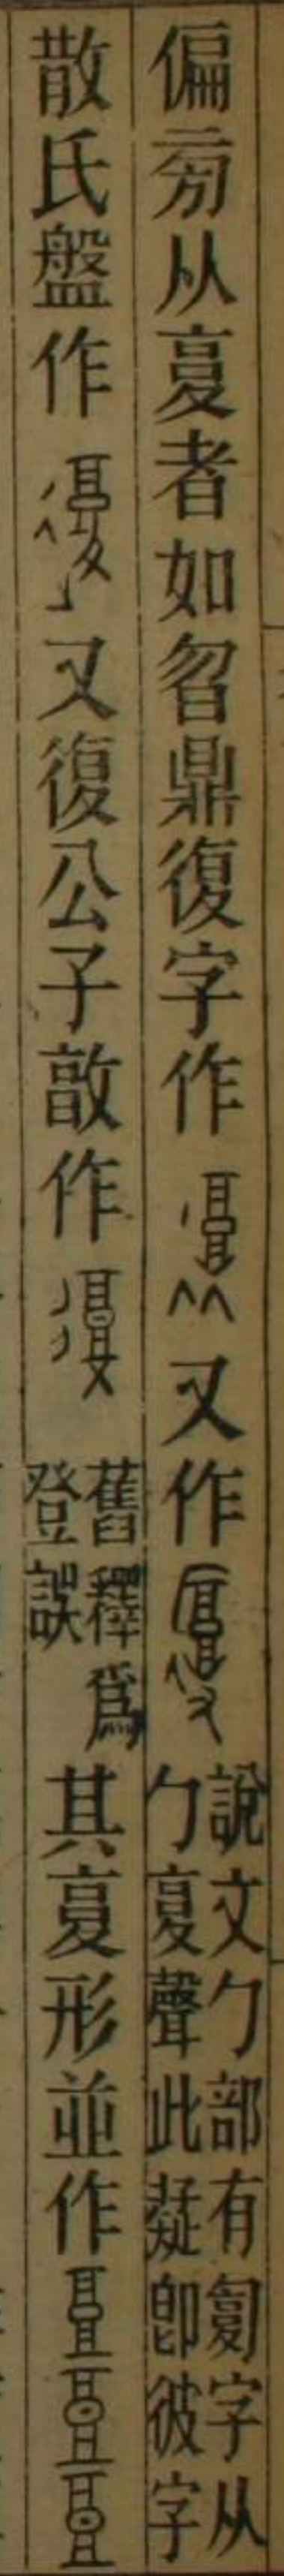 偏旁从㚆者如曶鼎復字作又作說文勹部有匔字从勹㚆聲此疑卽彼字
散氏盤作又復公子敦作舊釋爲登誤其㚆形並作